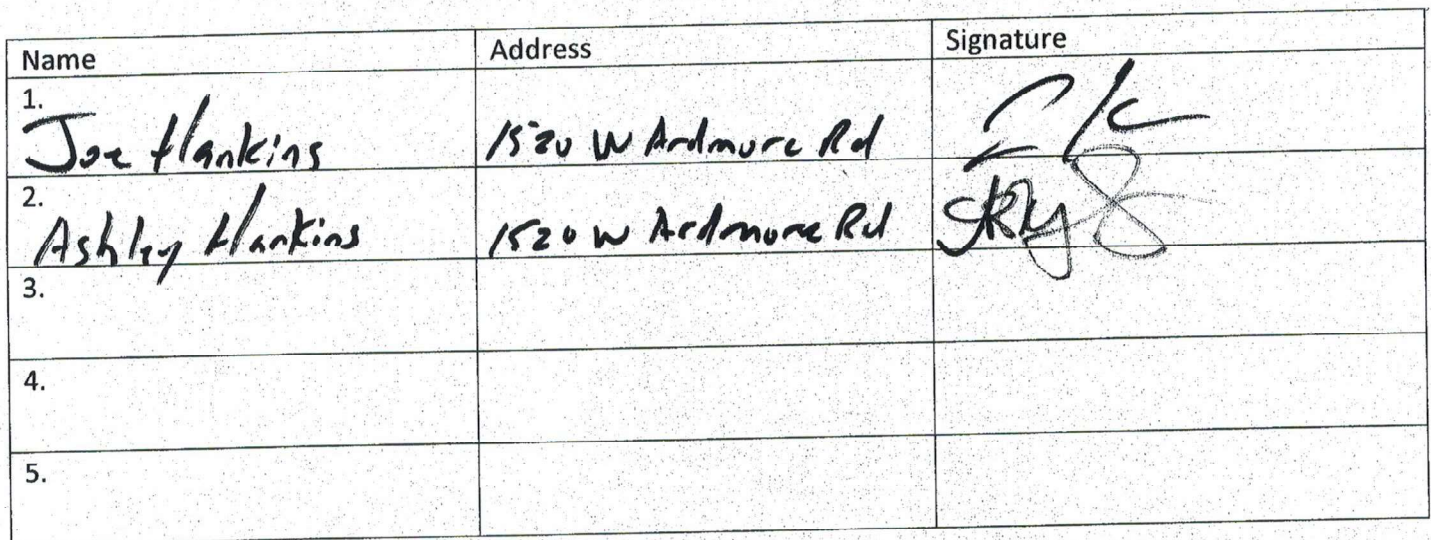 Name Address Signature
1.
Joe Hankins 1520 W Ardmore Rd
2.
Ashley Hankins 1520 W Ardmore Rd
3.
4.
5.